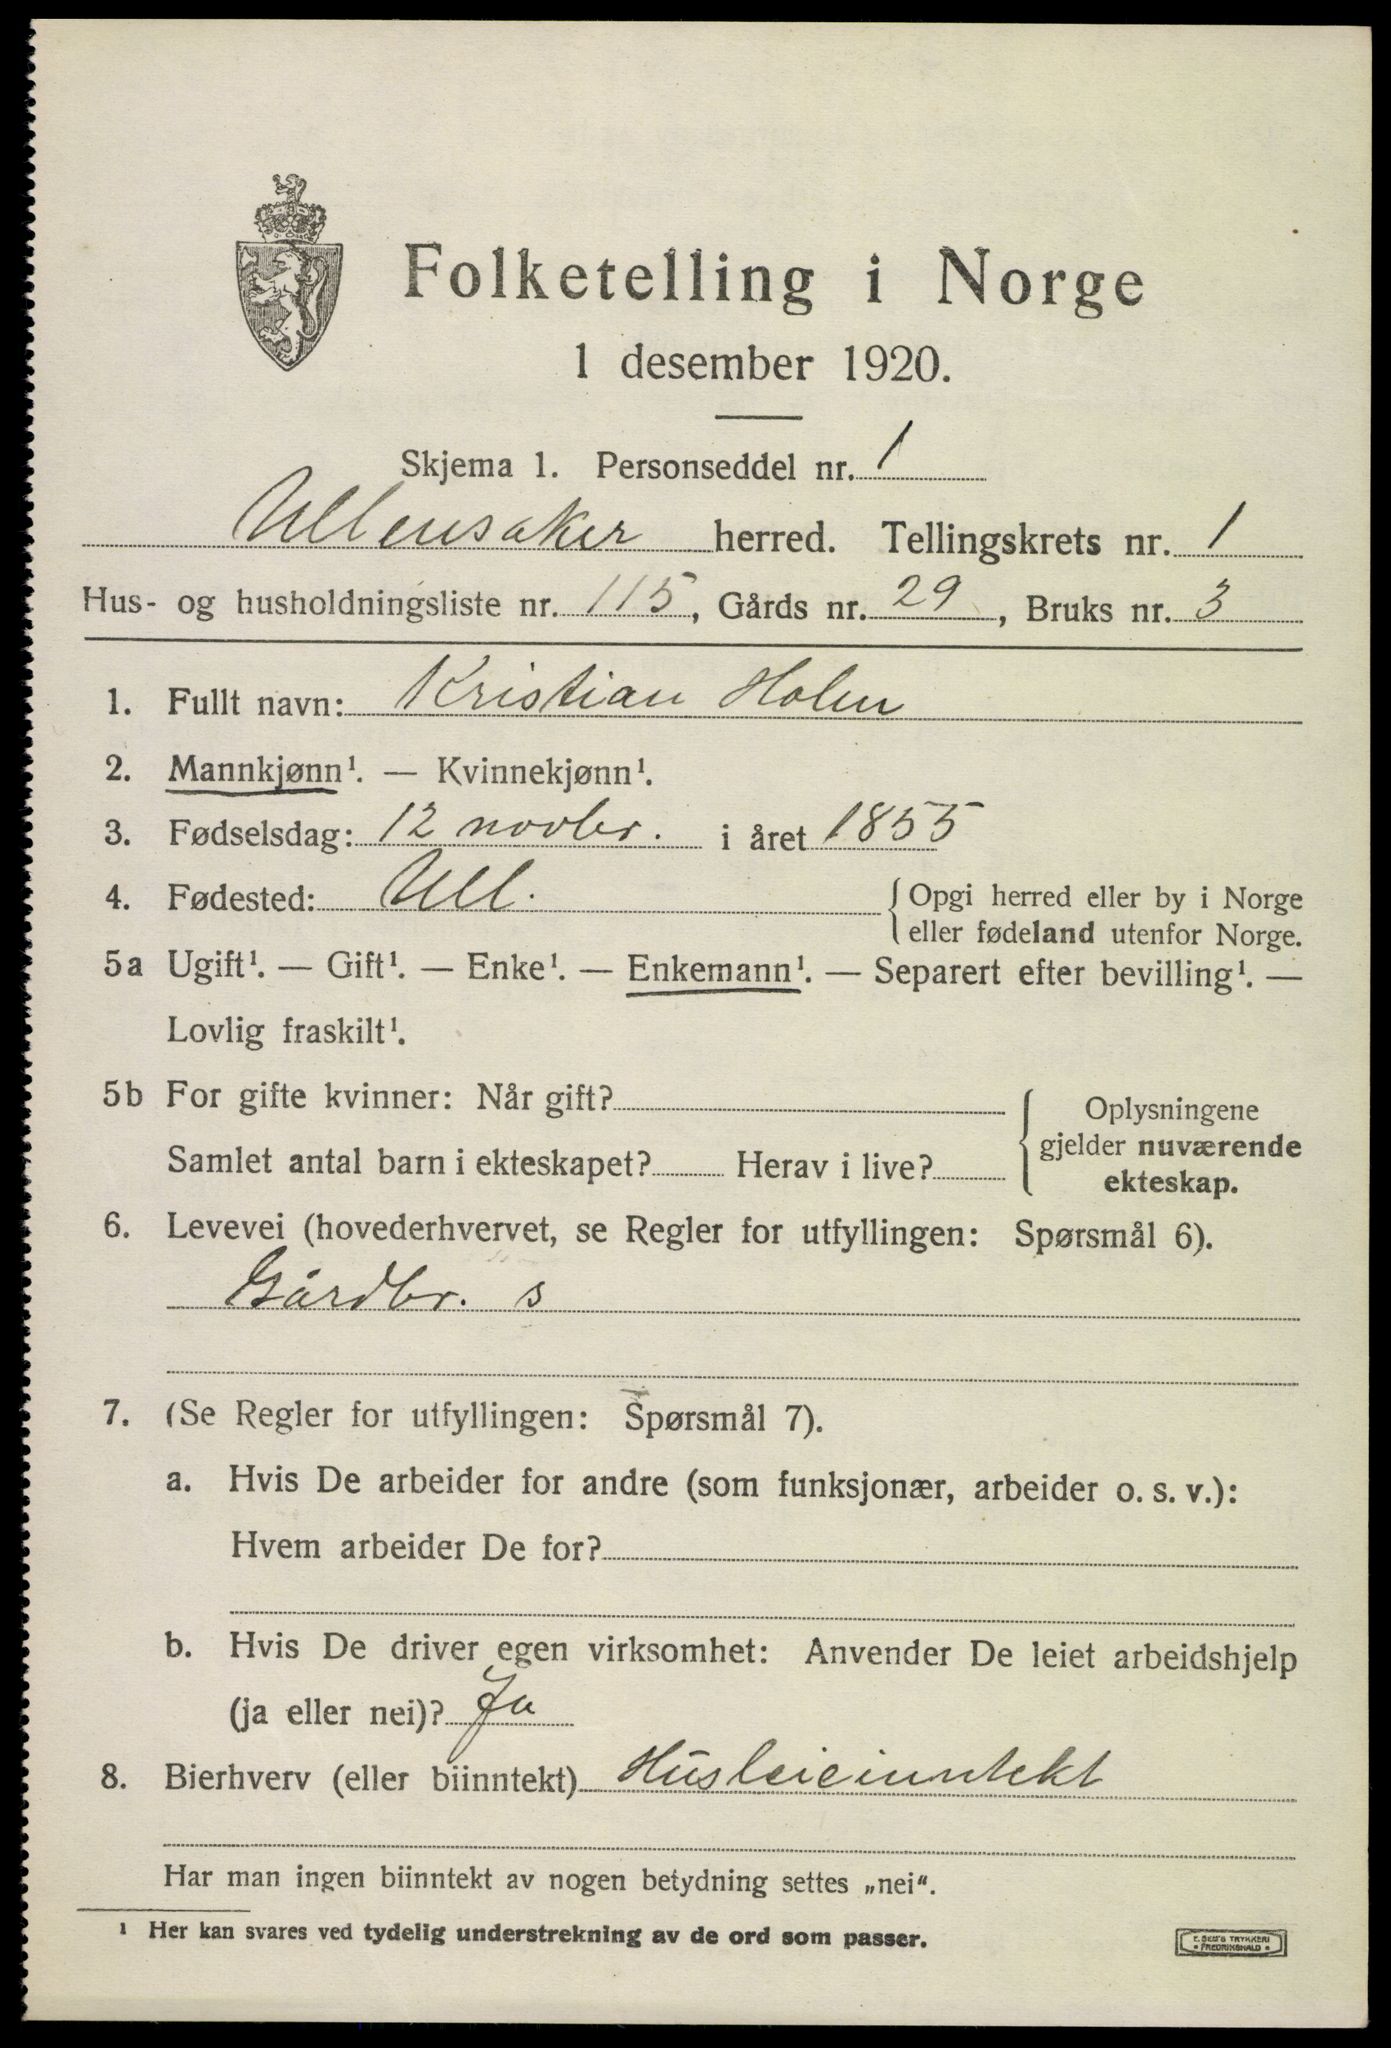 Folketelling i Norge
1 desember 1920.
Skjema 1. Personseddel nr. 1
Ullensaker herred. Tellingskrets nr. 1
Hus- og husholdningsliste nr. 115, Gårds nr. 29, Bruks nr. 3
1. Fullt navn: Kristian Holm
2. Mannkjønn¹. — Kvinnekjønn¹.
3. Fødselsdag: 12 novbr. i året 1855
4. Fødested: Ull. Opgi herred eller by i Norge
eller fødeland utenfor Norge.
5a Ugift¹. — Gift¹. — Enke¹. — Enkemann¹. — Separert efter bevilling¹. —
Lovlig fraskilt¹.
5b For gifte kvinner: Når gift? Oplysningene
gjelder nuværende
Samlet antal barn i ekteskapet? Herav i live? ekteskap.
6. Levevei (hovederhvervet, se Regler for utfyllingen: Spørsmål 6).
Gårdbr. s
7. (Se Regler for utfyllingen: Spørsmål 7).
a. Hvis De arbeider for andre (som funksjonær, arbeider o. s. v.):
Hvem arbeider De for?
b. Hvis De driver egen virksomhet: Anvender De leiet arbeidshjelp
(ja eller nei)? Ja
8. Bierhverv (eller biinntekt) Husleieinntekt
Har man ingen biinntekt av nogen betydning settes „nei“.
¹ Her kan svares ved tydelig understrekning av de ord som passer.
E. SEM'S TRYKKERI
• FREDRIKSHALD •